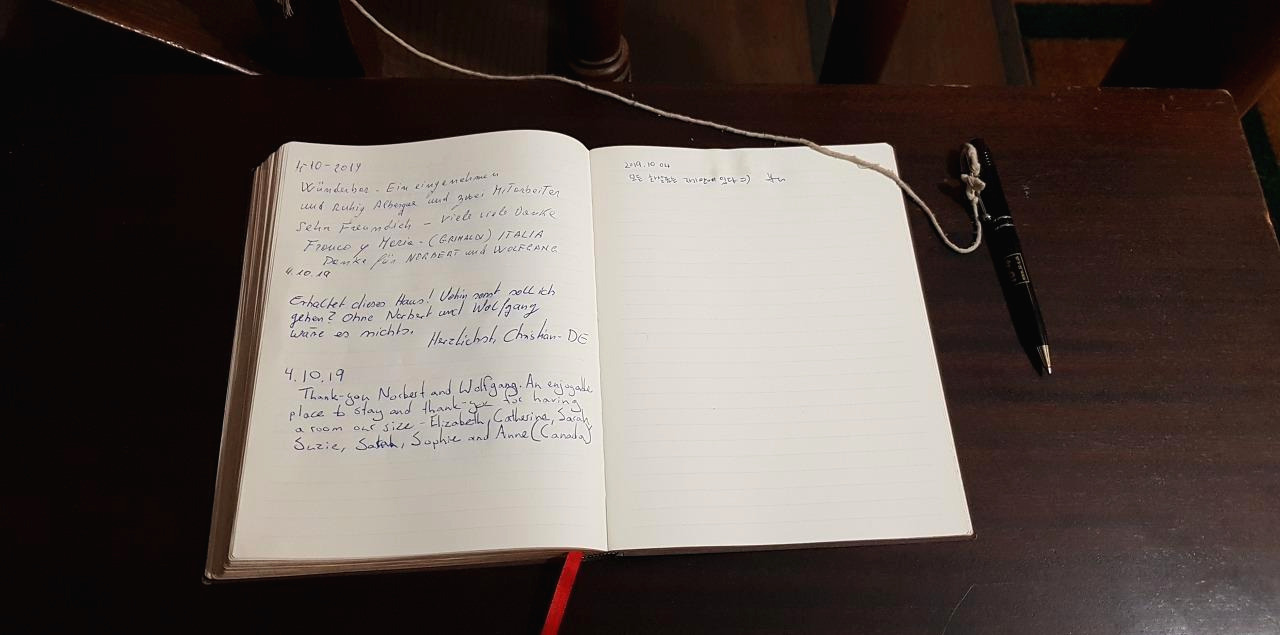 4-10-2019
Wünderbar - Ein eingenehmen
und Ruhig Alberque und zwei Mitarbeiter
Sehn Freundlich - viele viele Danke
Franco y Maria - (GRIMALDI) ITALIA
Danke für NORBERT und WOLFGANG
4.10.19
Erhaltet dieses Haus! Wohin sonst soll ich
gehen? Ohne Norbert und Wolfgang
wäre es nichts.
Herzlichst, Christian - DE
4.10.19
Thank-you Norbert and Wolfgang. An enjoyable
place to stay and thank-you for having
a room our size - Elizabeth, Catherine, Sarah,
Suzie, Sarah, Sophie and Anne (Canada)
2019.10.04
모든 는 자기안에 있다 =)